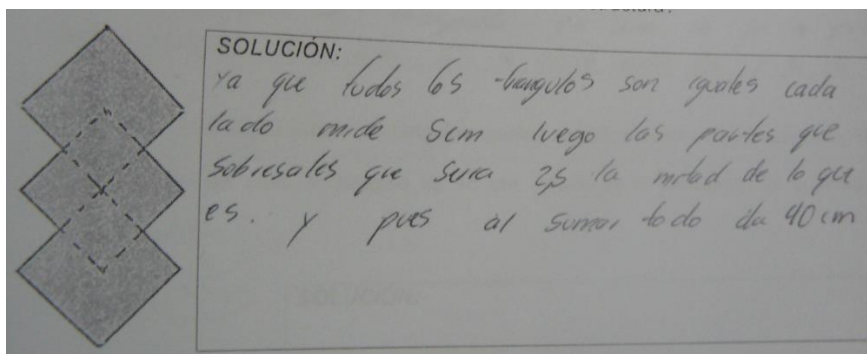 SOLUCIÓN:
Ya que todos los triangulos son iguales cada
lado mide 5cm luego las partes que
sobresales que sera 2,5 la mitad de lo que
es. y pues al sumar todo da 40 cm